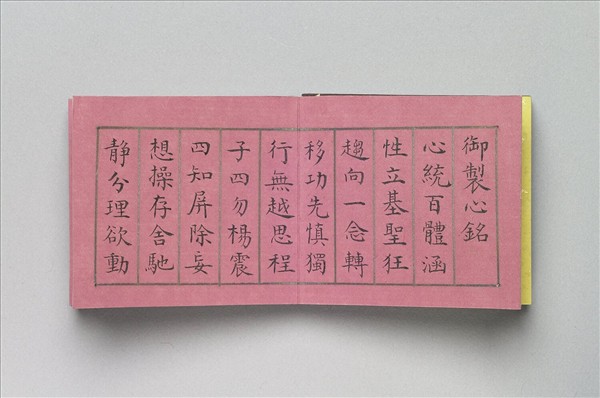 御製心銘
心統百體涵
性立基聖狂
趨向一念轉
移功先慎獨
行無越思程
子四勿楊震
四知屏除妄
想操存舍馳
靜分理欲動